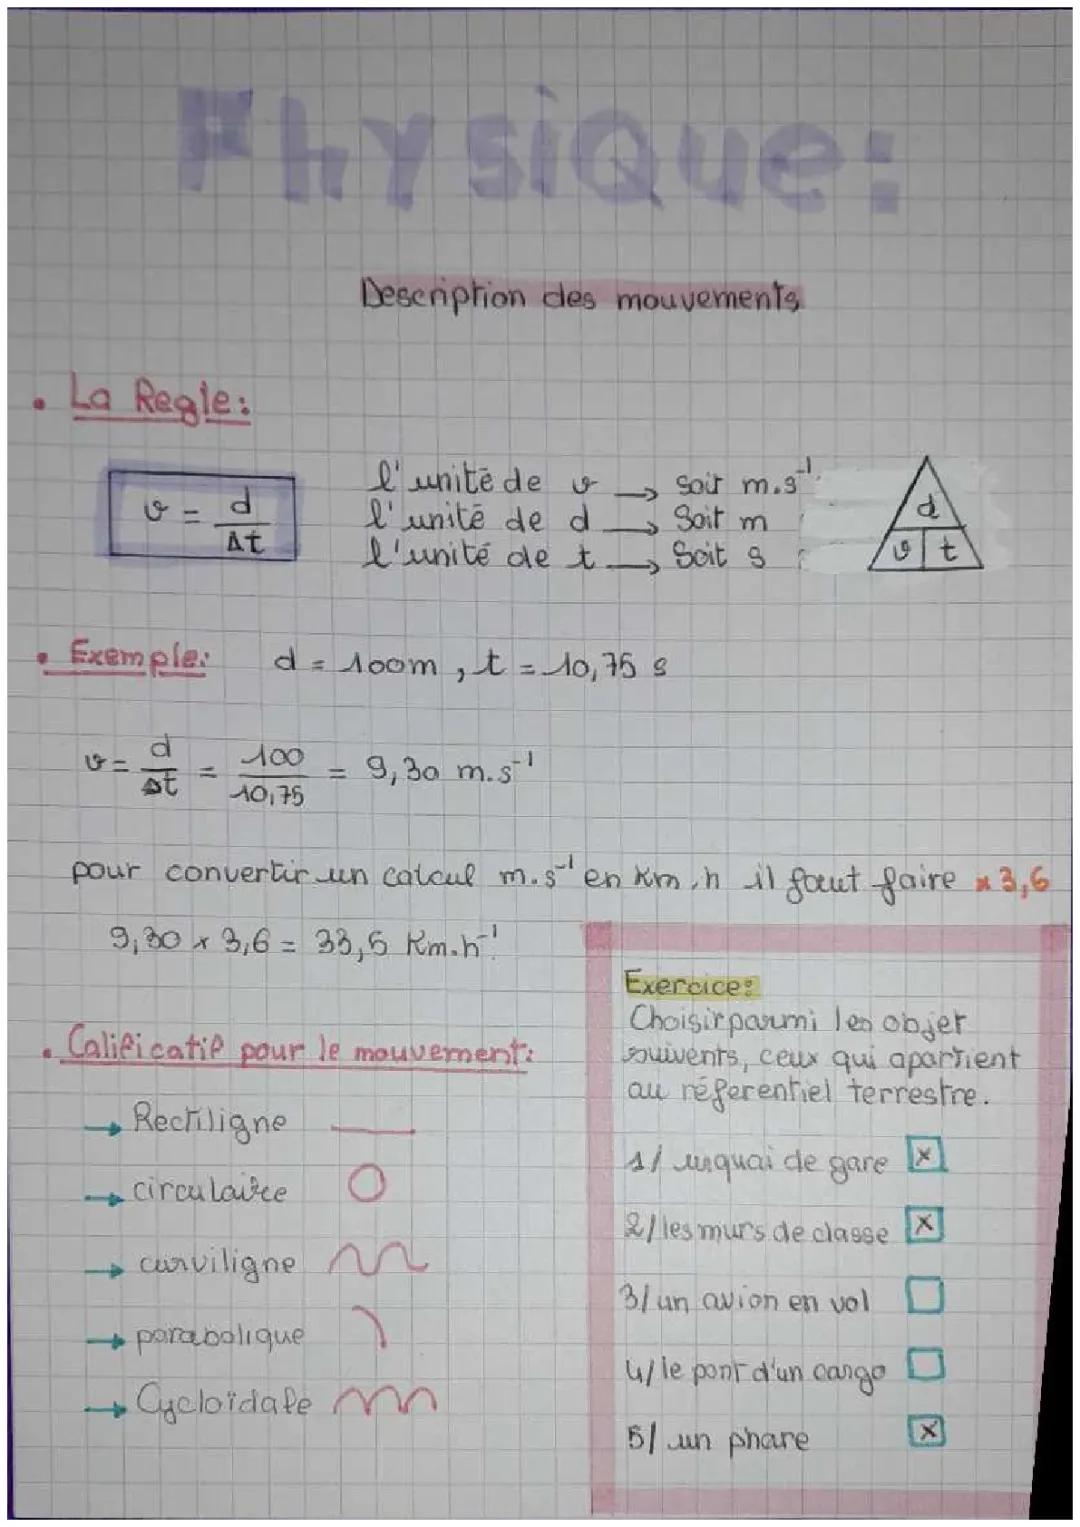 Physique:
Description des mouvements
• La Regle:
v = d/Δt
l'unité de v → soit m.s⁻¹
l'unité de d → Soit m
l'unité de t → Soit s
d
v t
• Exemple: d = 100m, t = 10,75 s
v = d/Δt = 100/10,75 = 9,30 m.s⁻¹
pour convertir un calcul m.s⁻¹ en Km.h il faut faire × 3,6
9,30 × 3,6 = 33,5 Km.h⁻¹
• Calificatif pour le mouvement:
→ Rectiligne
→ circulaire
→ curviligne
→ parabolique
→ Cycloïdale
Exercice:
Choisir parmi les objet
suivents, ceux qui apartient
au réferentiel terrestre.
1/ un quai de gare x
2/ les murs de classe x
3/ un avion en vol
4/ le pont d'un cargo
5/ un phare x